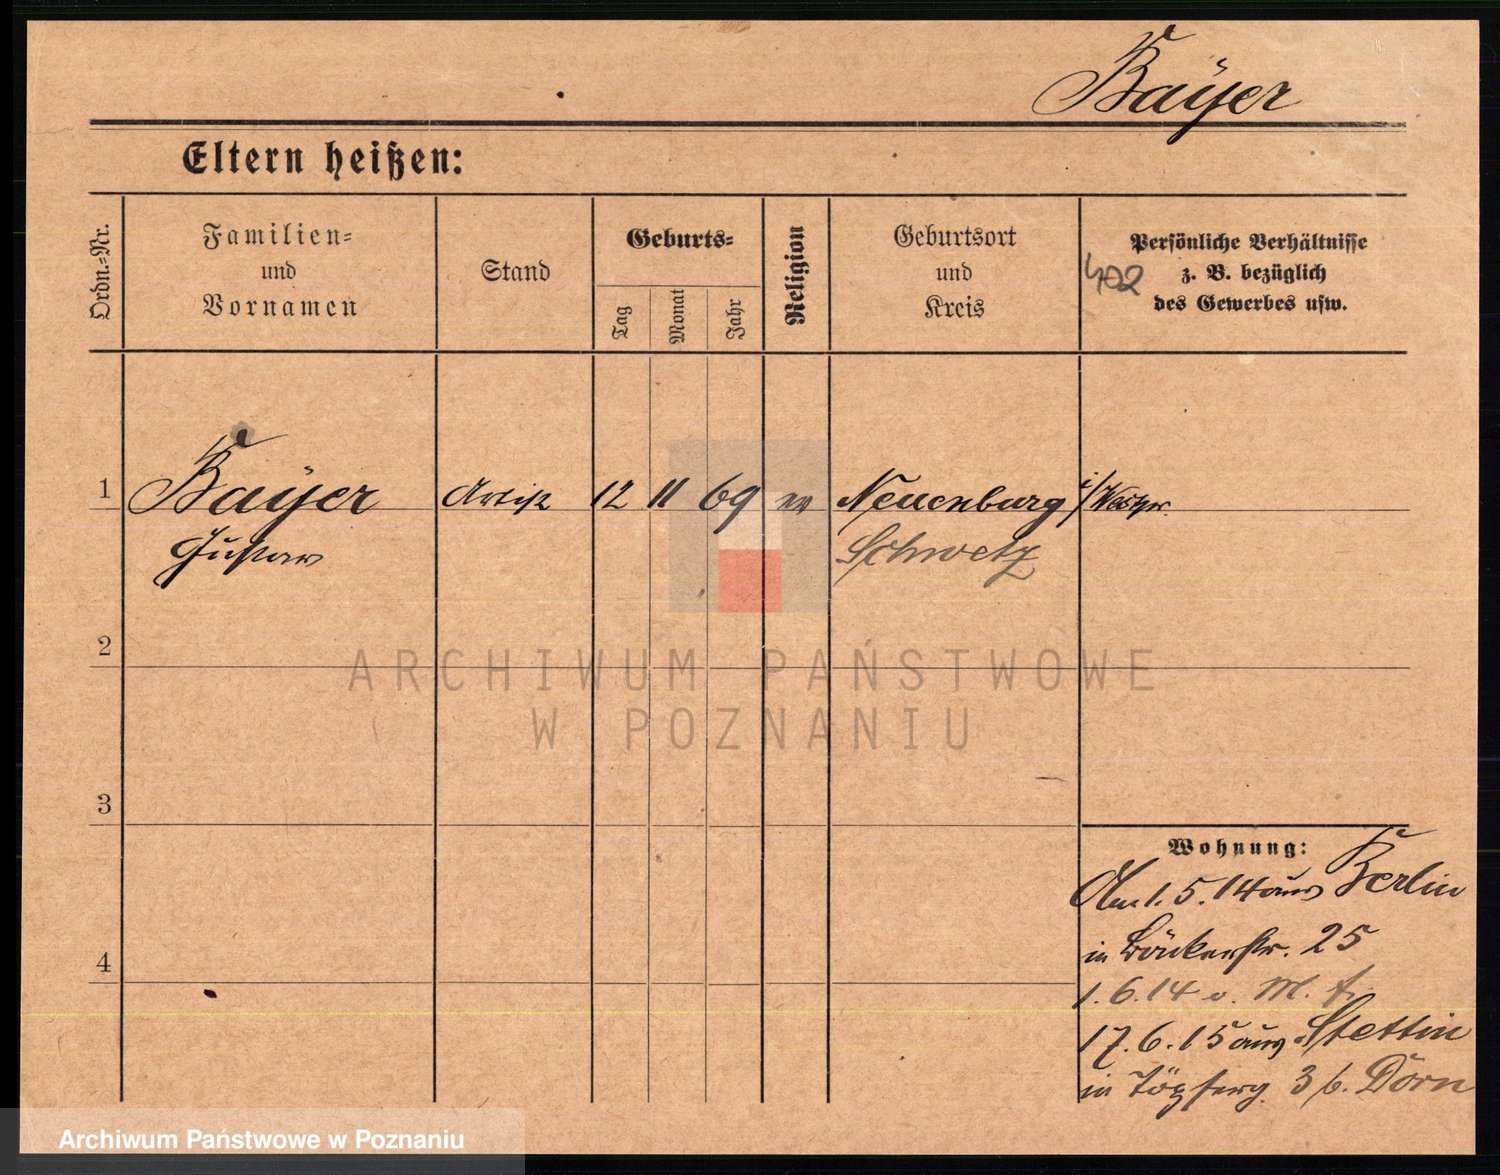 Baÿer
Eltern heißen:
Ordn.-Nr.
Familien-
und
Vornamen
Stand
Geburts-
Tag
Monat
Jahr
Religion
Geburtsort
und
Kreis
Persönliche Verhältnisse
z. B. bezüglich
des Gewerbes usw.
402
1 Baÿer Artist 12 11 69 Neuenburg i/Westpr.
Gustav Schwetz
2
ARCHIWUM PAŃSTWOWE
W POZNANIU
3
Wohnung:
Am 1. 5. 14 aus Berlin
in Bäckerstr. 25
4
1. 6. 14 v. M.
17. 6. 15 aus Stettin
in Töpferg. 3 b. Dorn
Archiwum Państwowe w Poznaniu